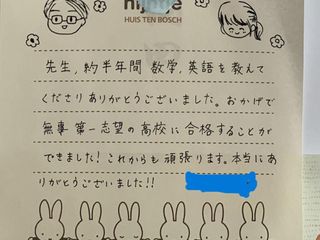 nijntje
HUIS TEN BOSCH
先生,約半年間 数学,英語を教えて
くださりありがとうございました。おかげで
無事 第一志望の高校に合格することが
できました!これからも頑張ります。本当にあ
りがとうございました!!